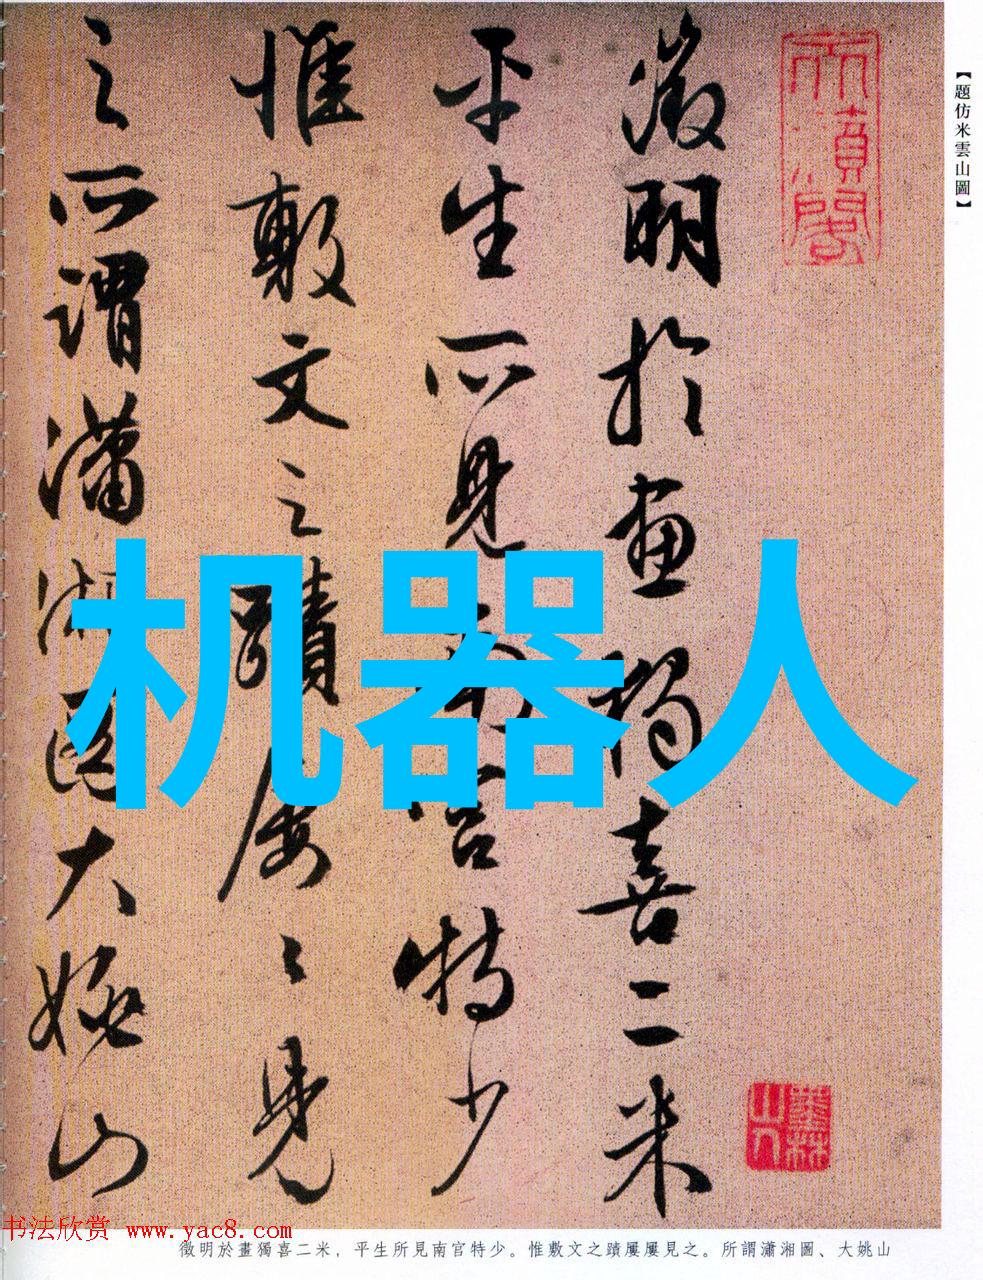 【題仿米雲山圖】
徵明於畫獨喜二米
平生所見南宮特少
惟敷文之蹟屢〻見
之所謂瀟湘圖大姚山
墨林山人
机器人
书法欣赏 www.yac8.com
徵明於畫獨喜二米，平生所見南宮特少。惟敷文之蹟屢屢見之。所謂瀟湘圖、大姚山